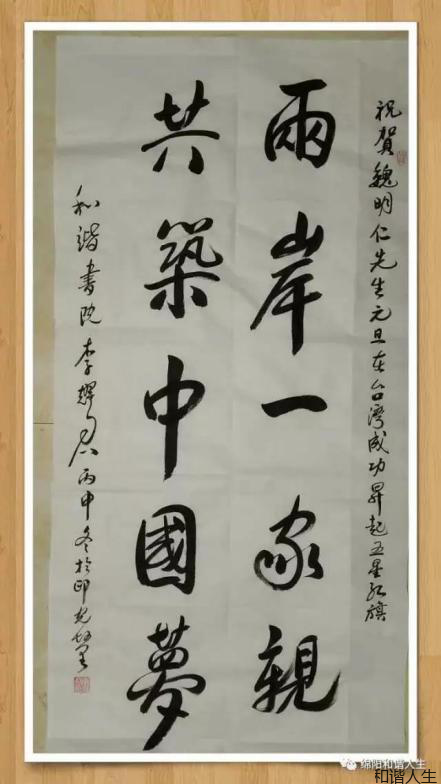 祝賀魏明仁先生元旦在台灣成功昇起五星紅旗
兩岸一家親
共築中國夢
和諧書院李輝丙申冬於
绵阳和谐人生
和谐人生